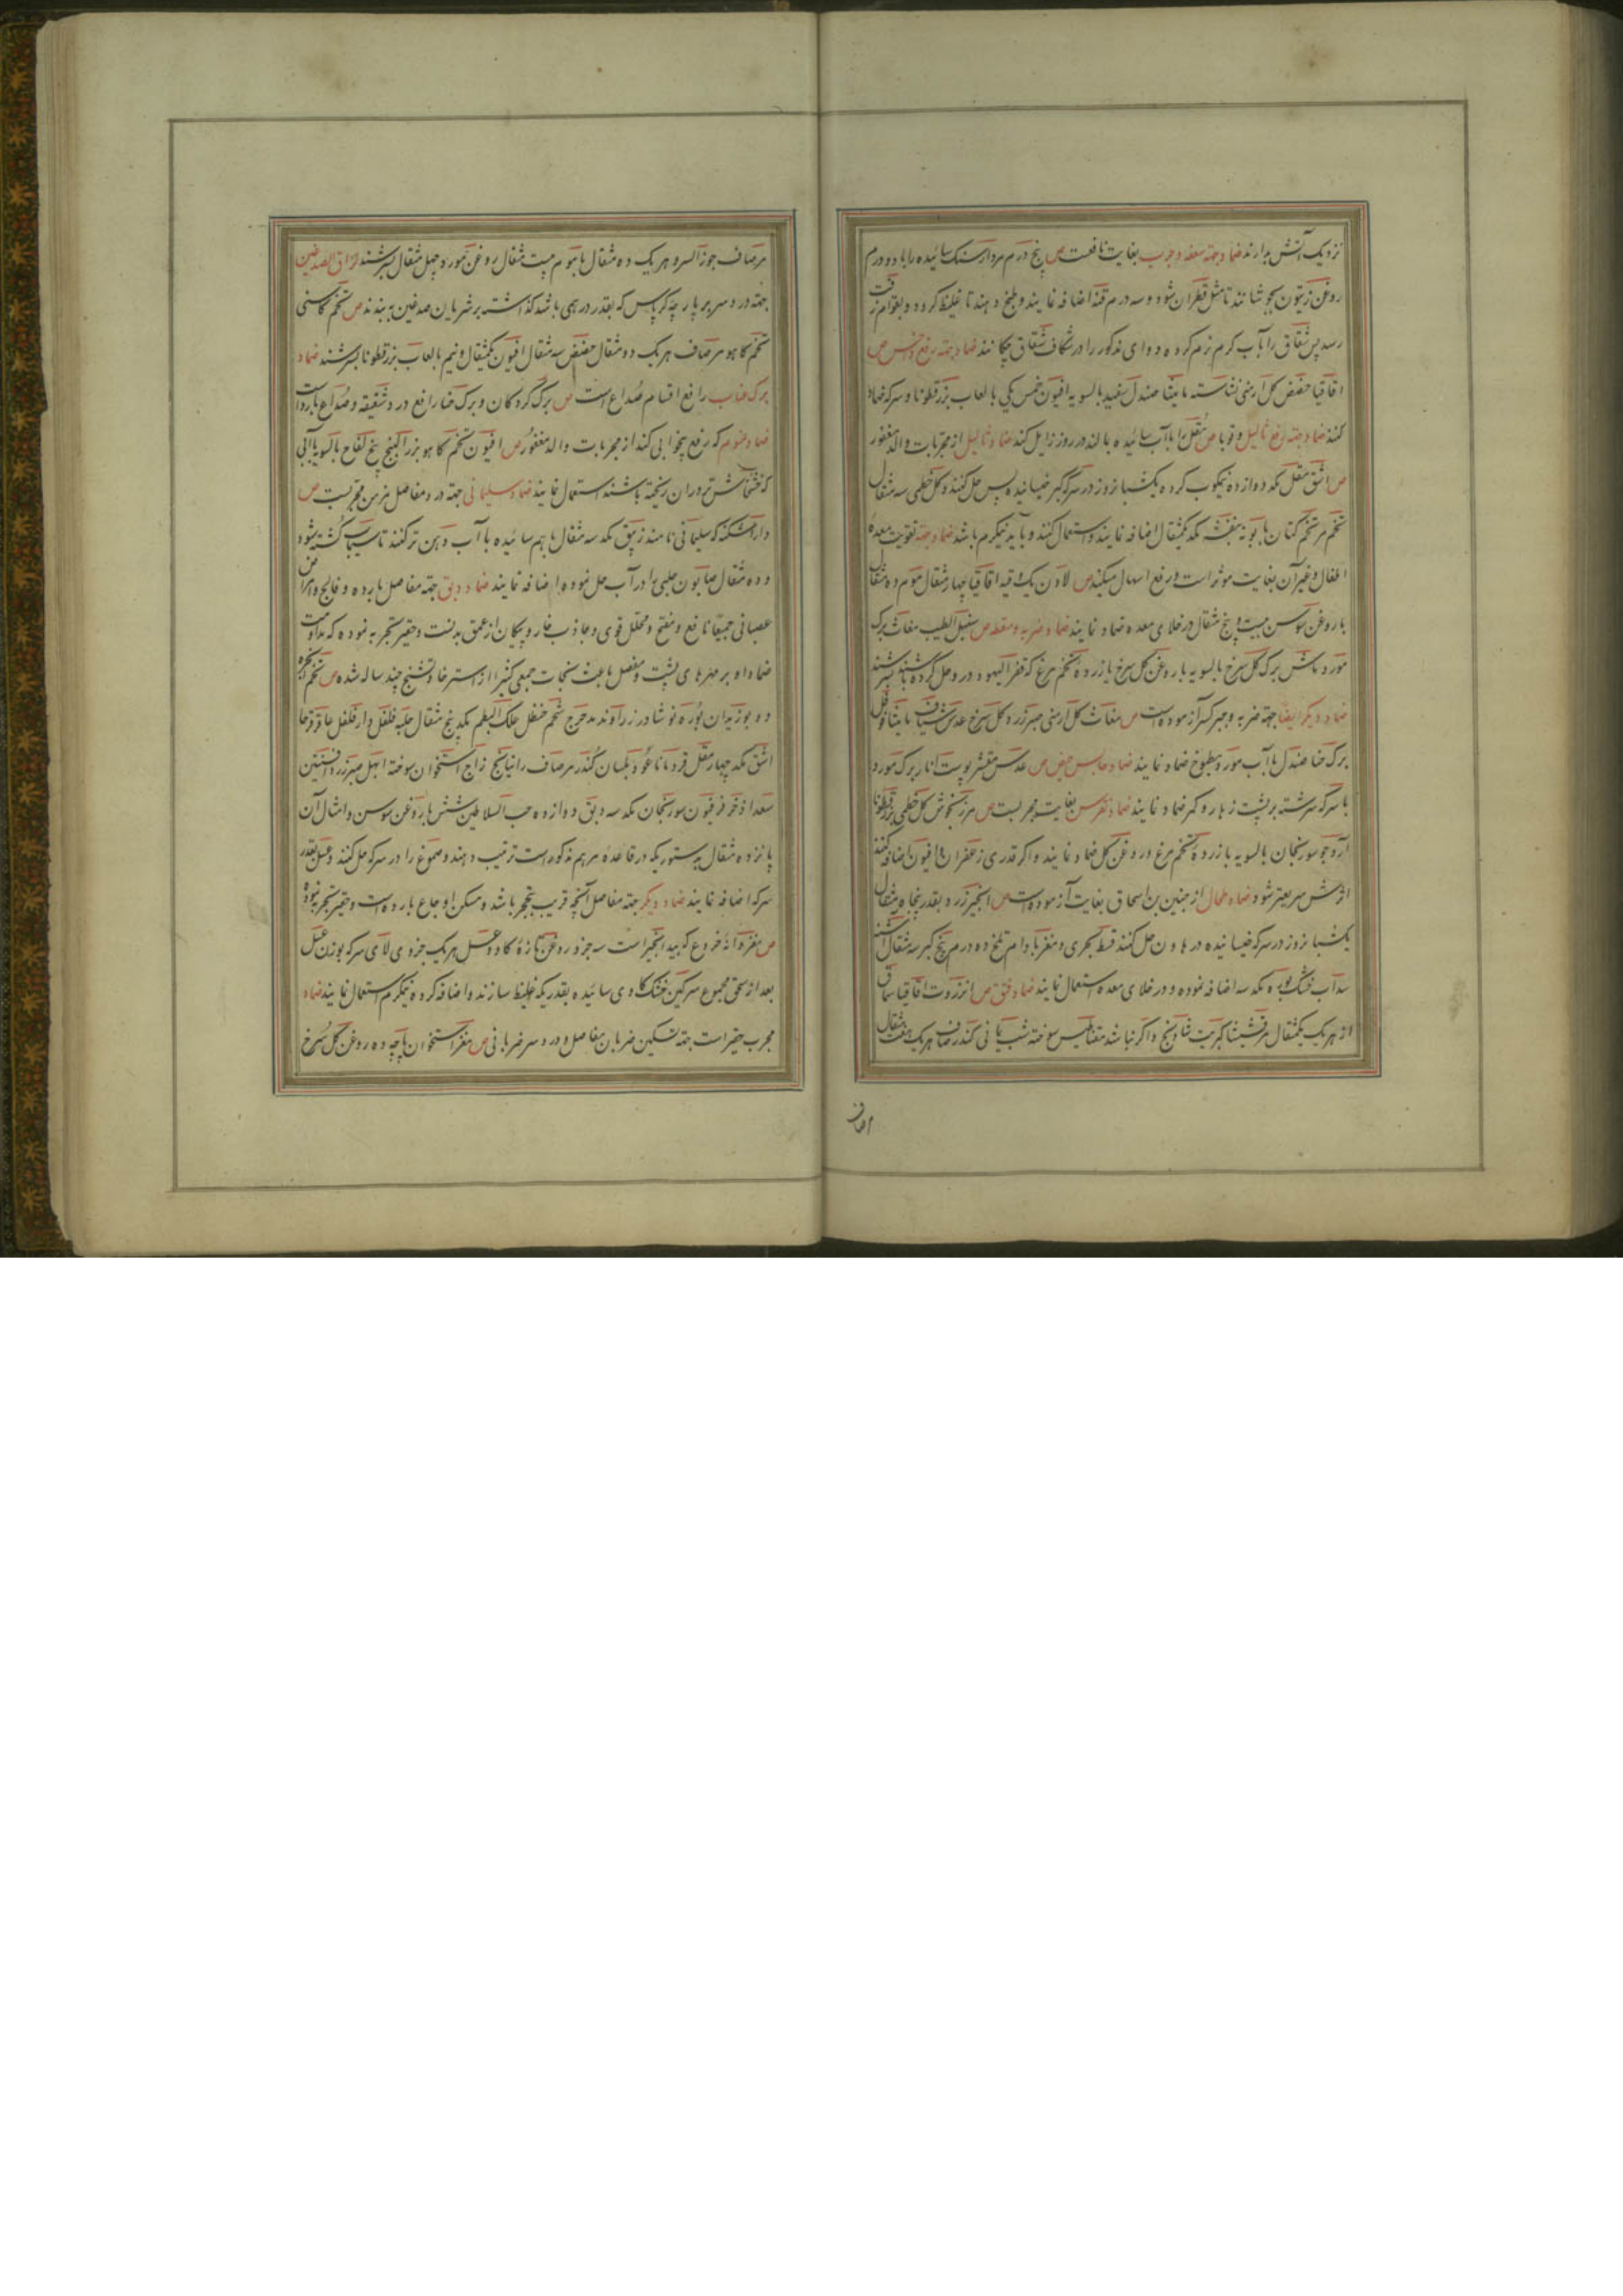 نزدیک آتش بدارند ضماد جهة سعفه و جرب بغایت نافعست ص پنج درم مردارسنک سائیده را با دو درم
روغن زیتون بجوشانند تا مثل قطران شود و سه درم قنه اضافه نمایند و طبخ دهند تا غلیظ کردد و بقوام زفت
رسد پس شقاق را بآب کرم نرم کرده دوای مذکور را در شکاف شقاق چکانند ضماد جهة رفع داخس ص
اقاقیا حضض کل ارمنی نشاسته مامیثا صندل سفید بالسویه افیون خمس یکی با لعاب بزرقطونا و سرکه ضماد
کنند ضماد جهة رفع ثالیل و قوبا ص مقل را باآب سائیده بمالند در روز زایل کند ضماد ثالیل از مجربات والد مغفور
ص اشق مقل مکد دوازده نیمکوب کرده یکشبانروز در سرکه کبر خیسانیده پس حل کنند و کل خطمی سه مثقال
تخم مر تخم کتان بابونه بنفشه مکد یکمثقال اضافه نمایند و استعمال کنند و باید نیکرم باشد ضماد جهة تقویت معدهٔ
اطفال و غیر آن بغایت موثر است و رفع اسهال میکند ص لادن یک وقیه اقاقیا چهار مثقال موم ده مثقال
با روغن سوسن بیست و پنج مثقال در خلای معده ضماد نمایند ضماد ضربه و سقطه ص سنبل الطیب مغاث برک
مورد ماش برک کل سرخ بالسویه با روغن کل سرخ با زرده تخم مرغ که قفر الیهود در و حل کرده باشند بسرشند
ضماد دیکر ایضا جهة ضربه و جبر کسر آزموده است ص مغاث کل ارمنی صبر زرد کل سرخ عدس شیاف مامیثا فوفل
برک حنا صندل باآب مورد مطبوخ ضماد نمایند ضماد حابس حیض ص عدس مقشر پوست انار برک مورد
با سرکه سرشته بر پشت زهار و کمر ضماد نمایند ضماد نقرس بغایت مجربست ص مرزنجوش کل خطمی بزرقطونا
آرد جو سورنجان بالسویه با زردهٔ تخم مرغ و روغن کل ضماد نمایند و اکر قدری زعفران و افیون اضافه کنند
اثرش سریعتر شود ضماد طحال از حنین بن اسحاق بغایت آزموده است ص انجیر زرد بقدر پنجاه مثقال
یکشبانروز در سرکه خیسانیده در هاون حل کنند قسط بحری و مغز بادام تلخ ده درم بیخ کبر سه مثقال اشنه
سداب خشک بوره مکد سه اضافه نموده و در خلای معده استعمال نمایند ضماد فتق ص انزروت اقاقیا سماق
از هر یک یکمثقال مرقشیشا کبریت شادنج و اکر نباشد مغناطیس سوخته شب یمانی کندر صاف هر یک هفت مثقال
مر صاف جوز السرو هر یک ده مثقال با موم بیست مثقال روغن مورد چهل مثقال بسرشند لزاق الصدغین
جهة درد سر بر پارچه کرپاس که بقدر درهمی باشد کذاشته بر شریان صدغین به بندند ص تخم کاسنی
تخم کاهو مر صاف هر یک دو مثقال حضض سه مثقال افیون یکمثقال و نیم بالعاب بزرقطونا بسرشند ضماد
برک عناب رافع اقسام صداع است ص برک کردکان و برک حنا رافع درد شقیقه و صداع بارد است
ضماد منوم که رفع بیخوابی کند از مجربات والد مغفور ص افیون تخم کاهو بزر البنج بیخ لفاح بالسویه باآبی
که خشخاش تر در ان ریخته باشند استعمال نمایند ضماد سلیمانی جهة درد مفاصل مزمن مجربست ص
داراشکنه که سلیمانی نامند زیبق مکد سه مثقال باهم سائیده باآب دهن تر کنند تا سیماب کشته شود
و ده مثقال صابون حلبی را در آب حل نموده اضافه نمایند ضماد دبق جهة مفاصل بارده و فالج و امراض
عصبانی جمیعا نافع و مفتح و محلل قوی و جاذب خار و پیکان از عمق بدنست و حقیر تجربه نموده که مداومت
ضماد او بر مهرهای پشت و مفصل باعث نجات جمعی کثیر از استرخا و تشنج چند ساله شده ص تخم انجره
دو بوزیدان بوره نوشادر زراوند مدحرج شحم حنظل علک البطم مکد پنج مثقال حلبه فلفل دارفلفل عاقرقرحا
اشق مکد چهار مقل قردمانا عود بلسان کندر مر صاف راتیانج زاج استخوان سوخته ابهل صبر زرد افسنتین
سعد اذخر فرفیون سورنجان مکد سه دبق دوازده حب السلاطین شش با روغن سوسن و امثال آن
پانزده مثقال بدستوریکه در قاعدهٔ مرهم مذکور است ترتیب دهند و صموغ را در سرکه حل کنند و عسل بقدر
سرکه اضافه نمایند ضماد دیکر جهة مفاصل آنچه قریب بتحجر باشد و مسکن اوجاع بارده است و حقیر تجربه نموده
ص مغز دانهٔ خروع که بید انجیر است سه جزو روغن تازهٔ کاو و عسل هر یک جزوی لای سرکه بوزن عسل
بعد از سحق مجموع سرکین خشک کاوی سائیده بقدریکه غلیظ سازند واضافه کرده نیکرم استعمال نمایند ضماد
مجرب حقیر است جهة تسکین ضربان مفاصل و درد سر ضربانی ص مغز استخوان پاچه ده روغن کل سرخ